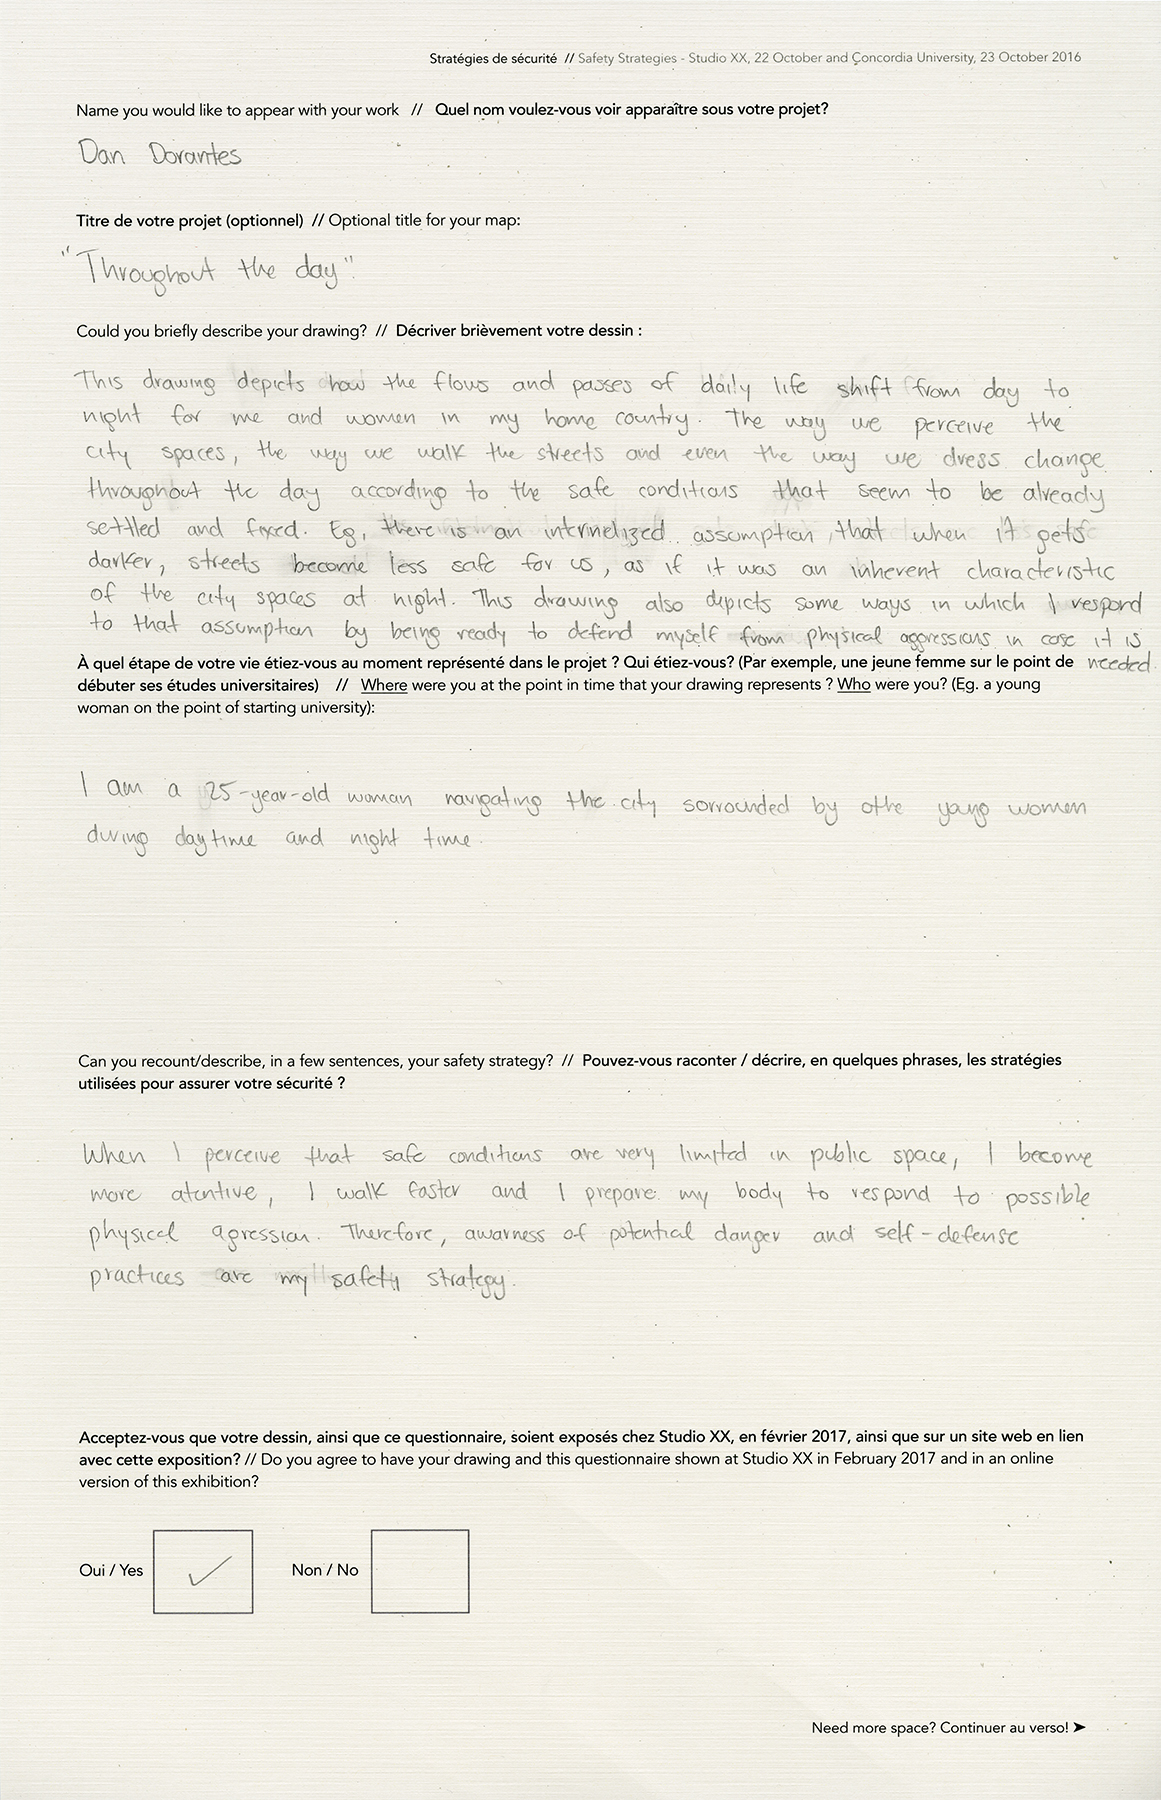 Stratégies de sécurité // Safety Strategies - Studio XX, 22 October and Concordia University, 23 October 2016
Name you would like to appear with your work // Quel nom voulez-vous voir apparaître sous votre projet?
Dan Dorantes
Titre de votre projet (optionnel) // Optional title for your map:
"Throughout the day"
Could you briefly describe your drawing? // Décriver brièvement votre dessin :
This drawing depicts how the flows and passes of daily life shift from day to
night for me and women in my home country. The way we perceive the
city spaces, the way we walk the streets and even the way we dress change
throughout the day according to the safe conditions that seem to be already
settled and fixed. Eg, there is an internelized assumption, that when it gets
darker, streets become less safe for us, as if it was an inherent characteristic
of the city spaces at night. This drawing also depicts some ways in which I respond
to that assumption by being ready to defend myself from physical aggressions in case it is
needed.
À quel étape de votre vie étiez-vous au moment représenté dans le projet ? Qui étiez-vous? (Par exemple, une jeune femme sur le point de
débuter ses études universitaires) // Where were you at the point in time that your drawing represents ? Who were you? (Eg. a young
woman on the point of starting university):
I am a 25-year-old woman navigating the city sorrounded by othe yang women
during daytime and night time.
Can you recount/describe, in a few sentences, your safety strategy? // Pouvez-vous raconter / décrire, en quelques phrases, les stratégies
utilisées pour assurer votre sécurité ?
When I perceive that safe conditions are very limited in public space, I become
more atentive, I walk faster and I prepare my body to respond to possible
physical agression. Therefore, awarness of potential danger and self-defense
practices are my safety strategy.
Acceptez-vous que votre dessin, ainsi que ce questionnaire, soient exposés chez Studio XX, en février 2017, ainsi que sur un site web en lien
avec cette exposition? // Do you agree to have your drawing and this questionnaire shown at Studio XX in February 2017 and in an online
version of this exhibition?
Oui / Yes ✓ Non / No
Need more space? Continuer au verso! ➤